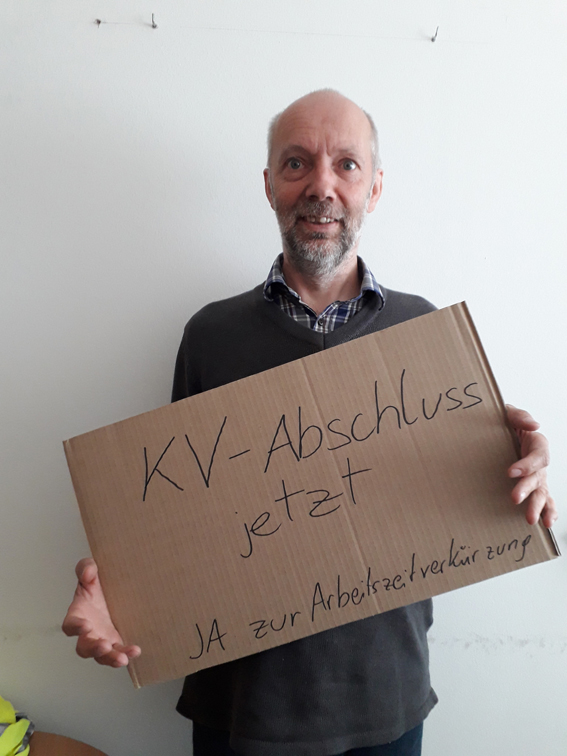 KV-Abschluss
jetzt
JA zur Arbeitszeitverkürzung